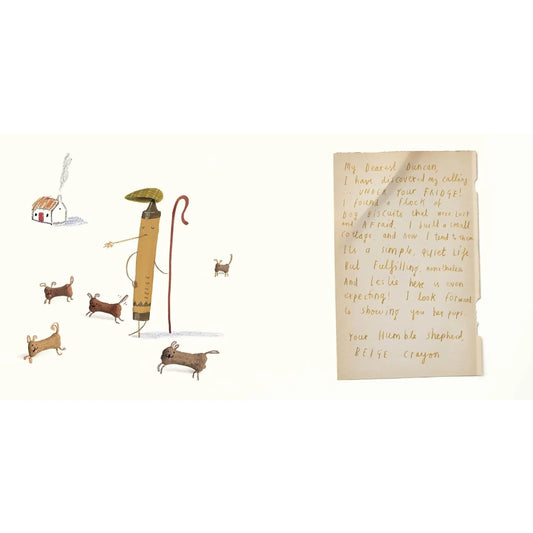 My Dearest Duncan,
I have discovered my calling
... UNDER YOUR FRIDGE!
I found a flock of
DOG BISCUITS that were lost
and AFraid. I built a small
cottage and now I tend to them
It's a simple, quiet life
But Fulfilling, nonetheless
And Leslie here is even
expecting! I look forward
to showing you her pups.
Your Humble shepherd,
BEIGE Crayon